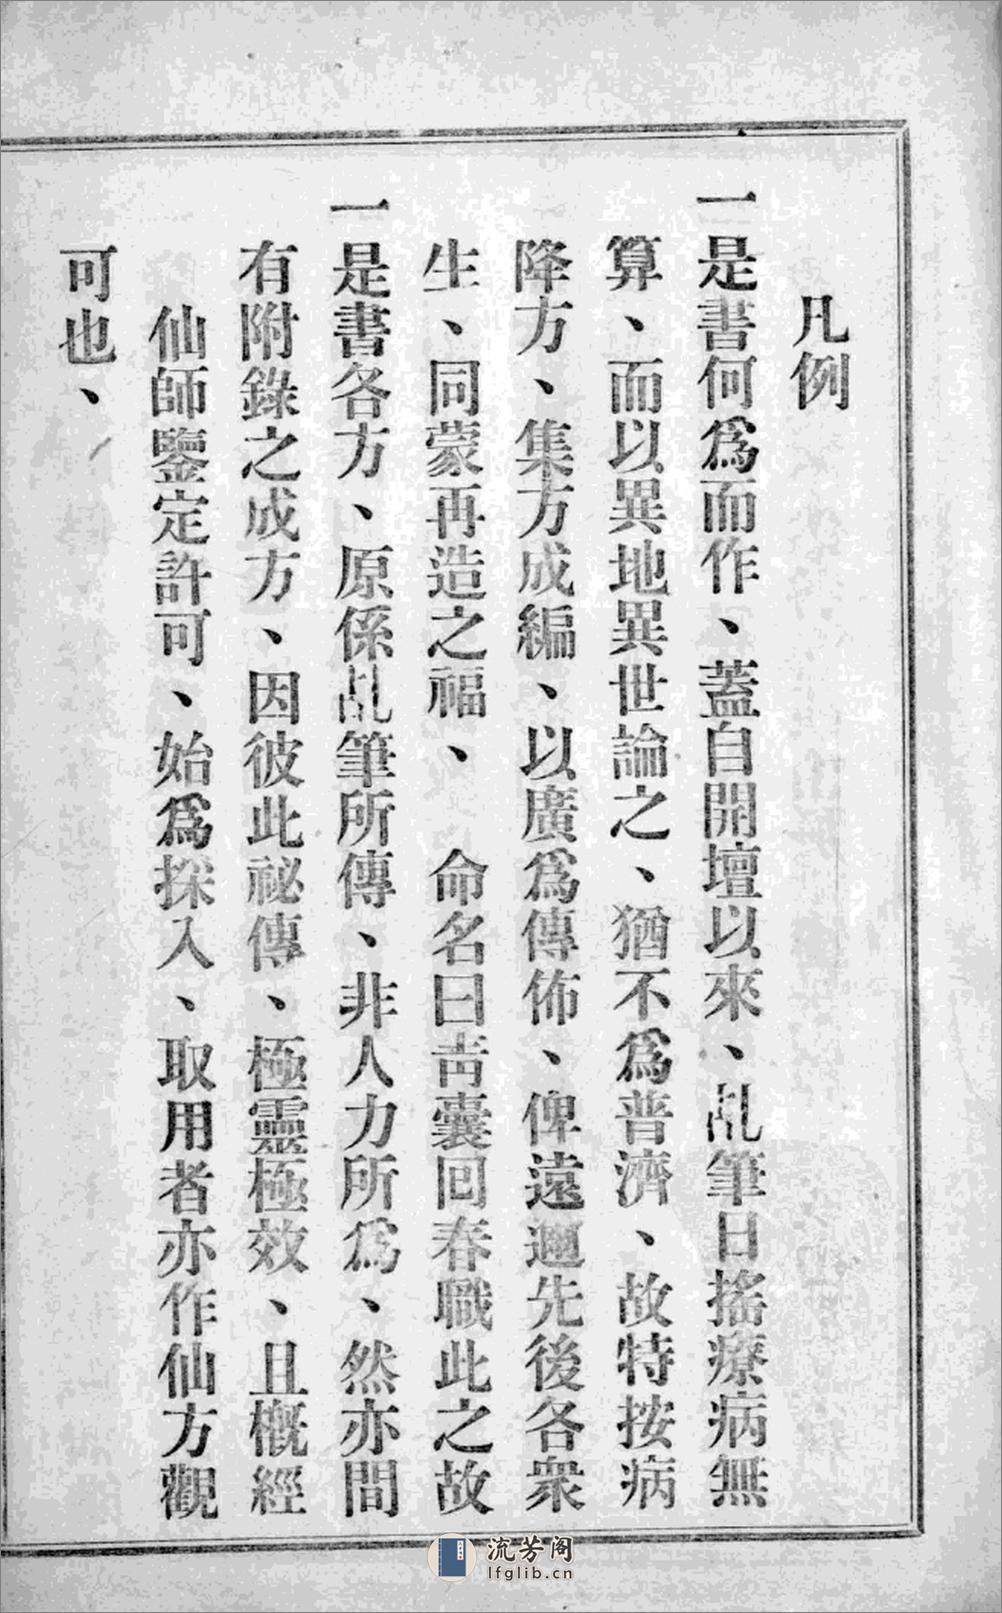 凡例
一是書何爲而作、蓋自開壇以來、乩筆日搖療病無
算、而以異地異世論之、猶不爲普濟、故特按病
降方、集方成編、以廣爲傳佈、俾遠邇先後各衆
生、同蒙再造之福、 命名曰青囊回春職此之故
一是書各方、原係乩筆所傳、非人力所爲、然亦間
有附錄之成方、因彼此祕傳、極靈極效、且槪經
仙師鑒定許可、始爲採入、取用者亦作仙方觀
可也、
流芳阁
lfglib.cn